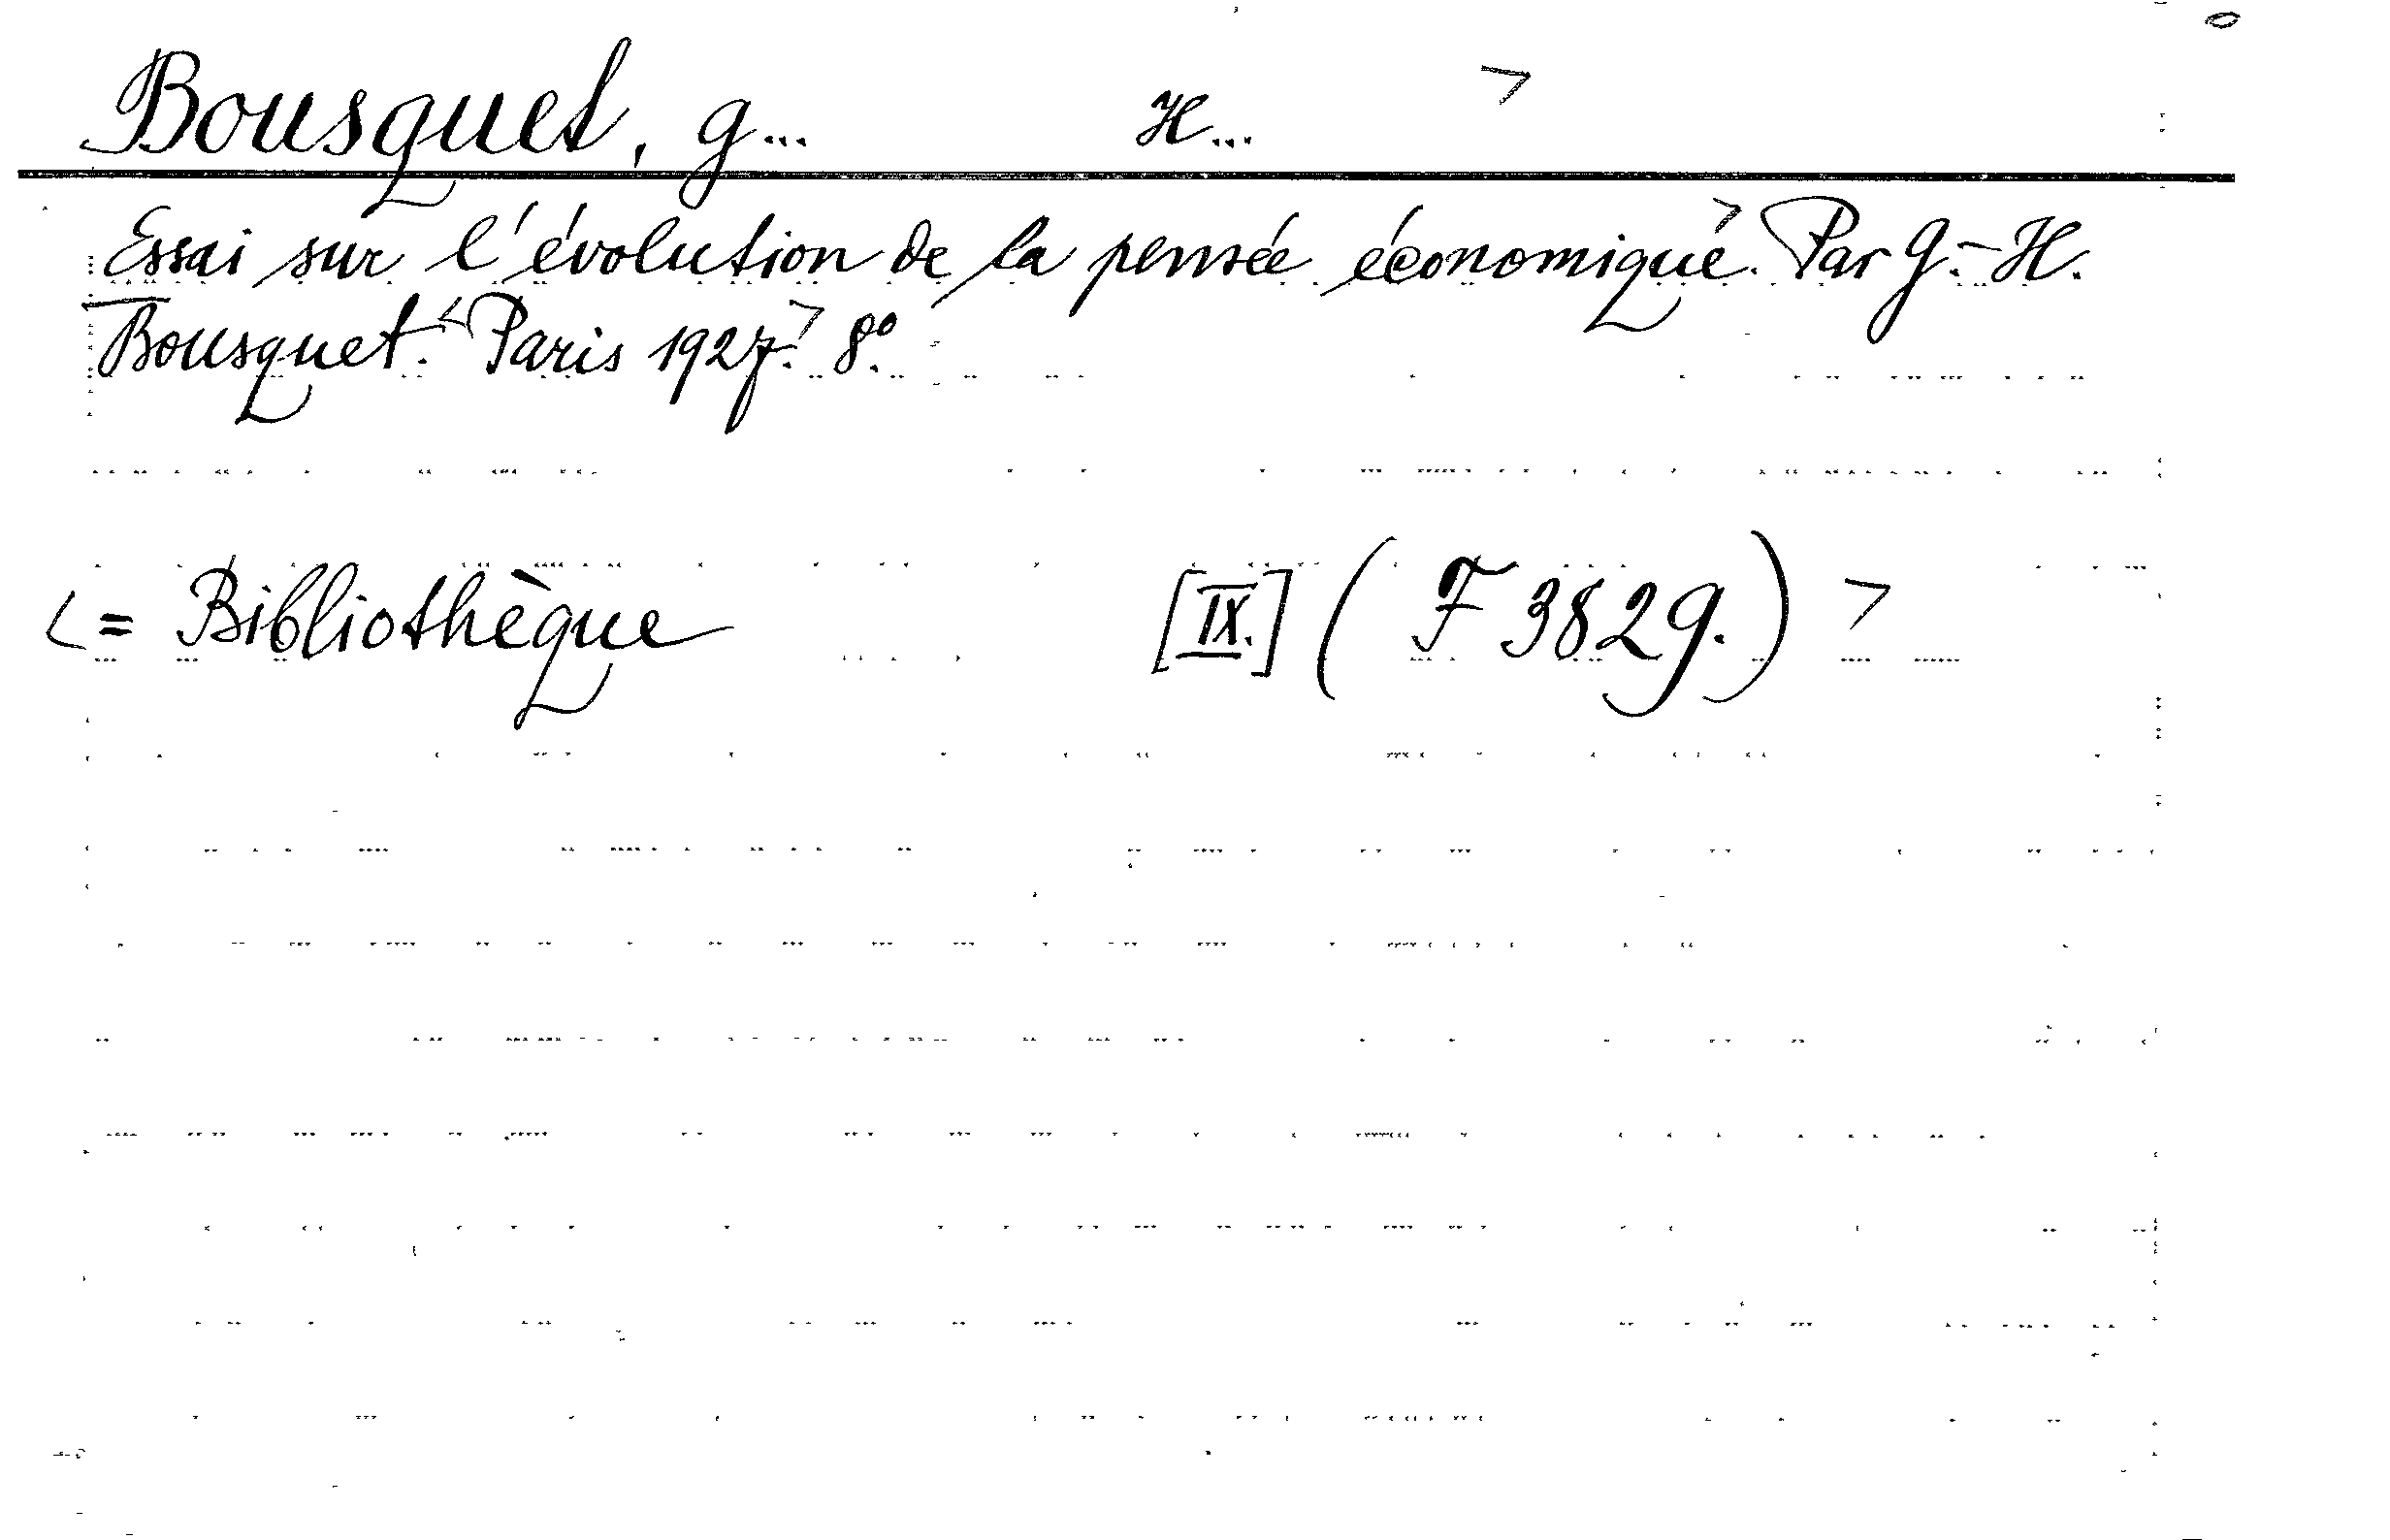 Bousquet, G... H... >
Essai sur l'évolution de la pensée économique.> Par G.-H.
Bousquet.< Paris 1927.> 8°.
<= Bibliothèque [IX.] ( F 3829.) >